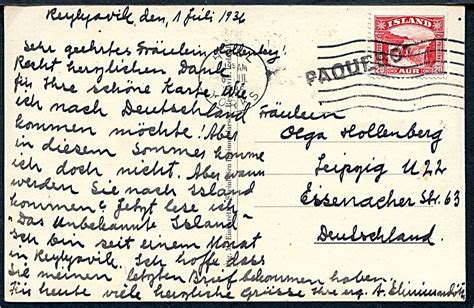 Reykyavik, den, 1 Juli 1936
Sehr geehrtes Fräulein Hollenberg!
Recht herzlichen Dank
für Ihre schöne Karte. Wie
ich nach Deutschland
kommen möchte! Aber
in diesem Sommer komme
ich doch nicht. Aber wann
werden Sie nach Island
kommen? Jetzt lese ich
"Das Unbekannte Island"
Ich bin seit einem Monat
in Reykyavik. Ich hoffe dass
Sie meinen letzten Brief bekommen haben.
Für heute viele herzliche Grüsse Ihre erg. A.
ISLAND
20 AUR 20
PAQUEBOT
Fräulein
Olga Hollenberg
Leipzig U 22
Essenacher Str. 63
Deutschland.